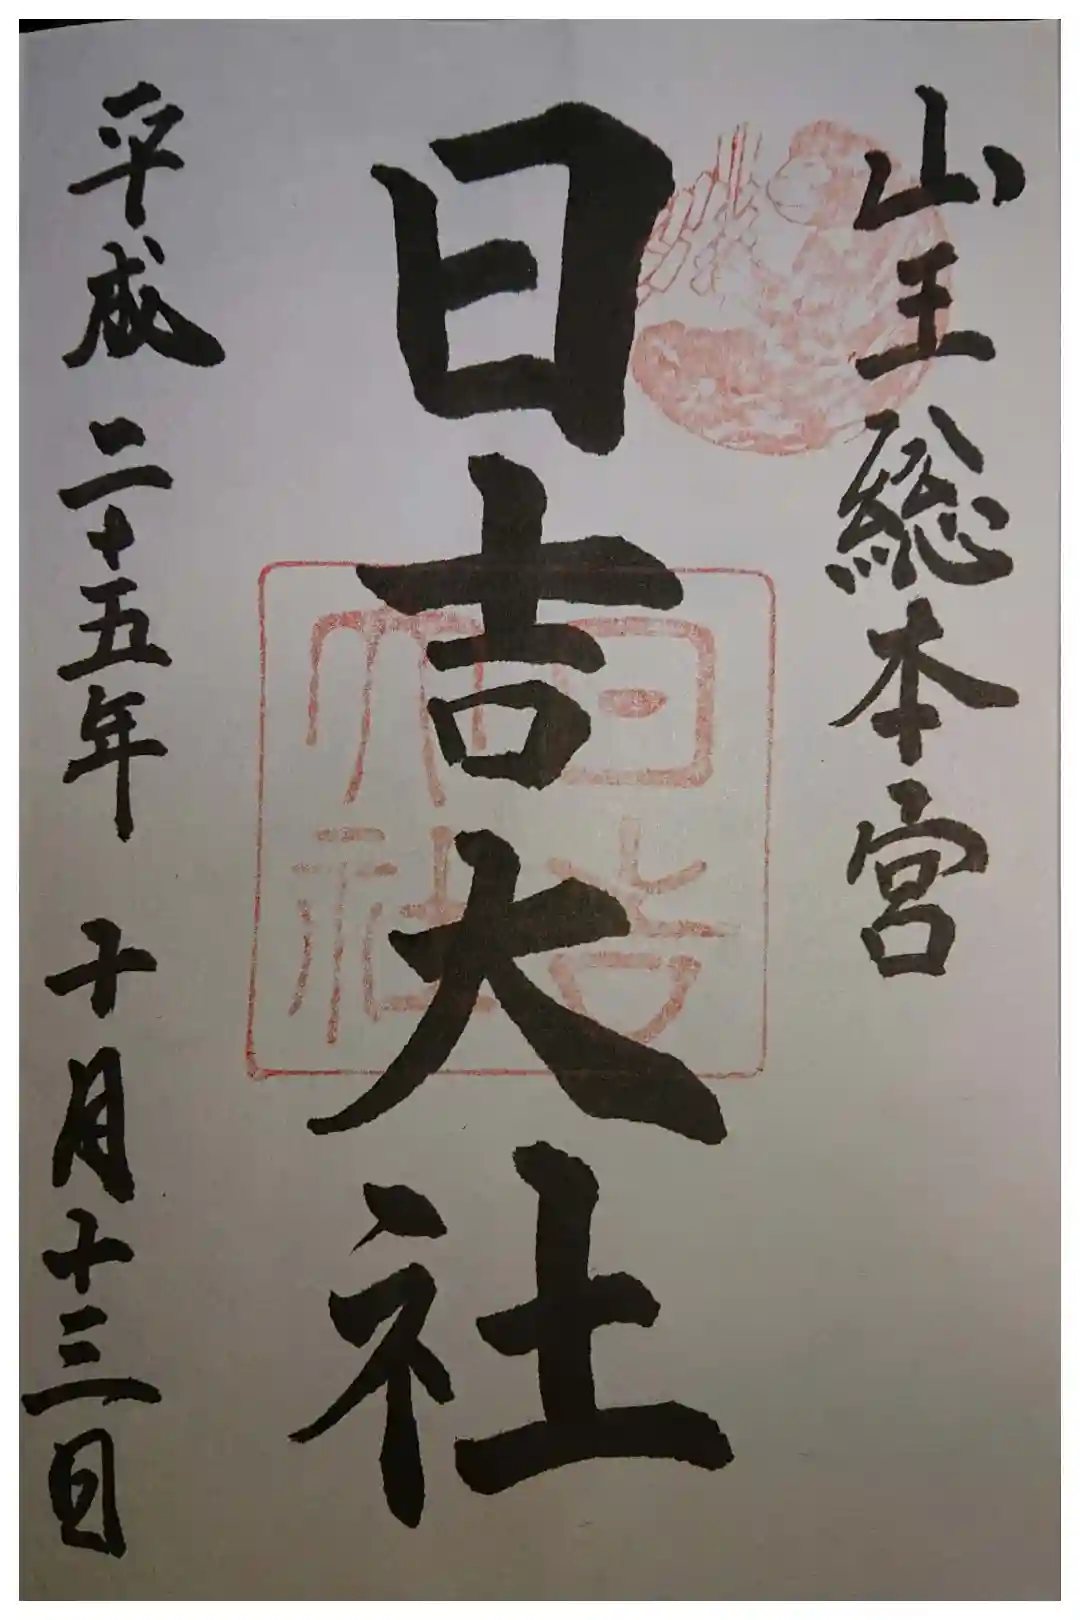 山王総本宮
日吉大社
日吉大社
平成二十五年 十月十三日